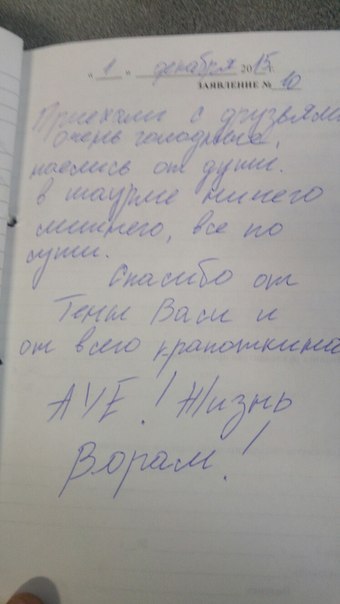 « 1 » декабря 2015 г.
ЗАЯВЛЕНИЕ № 10
Приехали с друзьями
очень голодные,
наелись от души.
в шаурме ничего
лишнего, все по
сути.
Спасибо от
Тени Васи и
от всего крапоткина
AVE! Жизнь
Ворам!